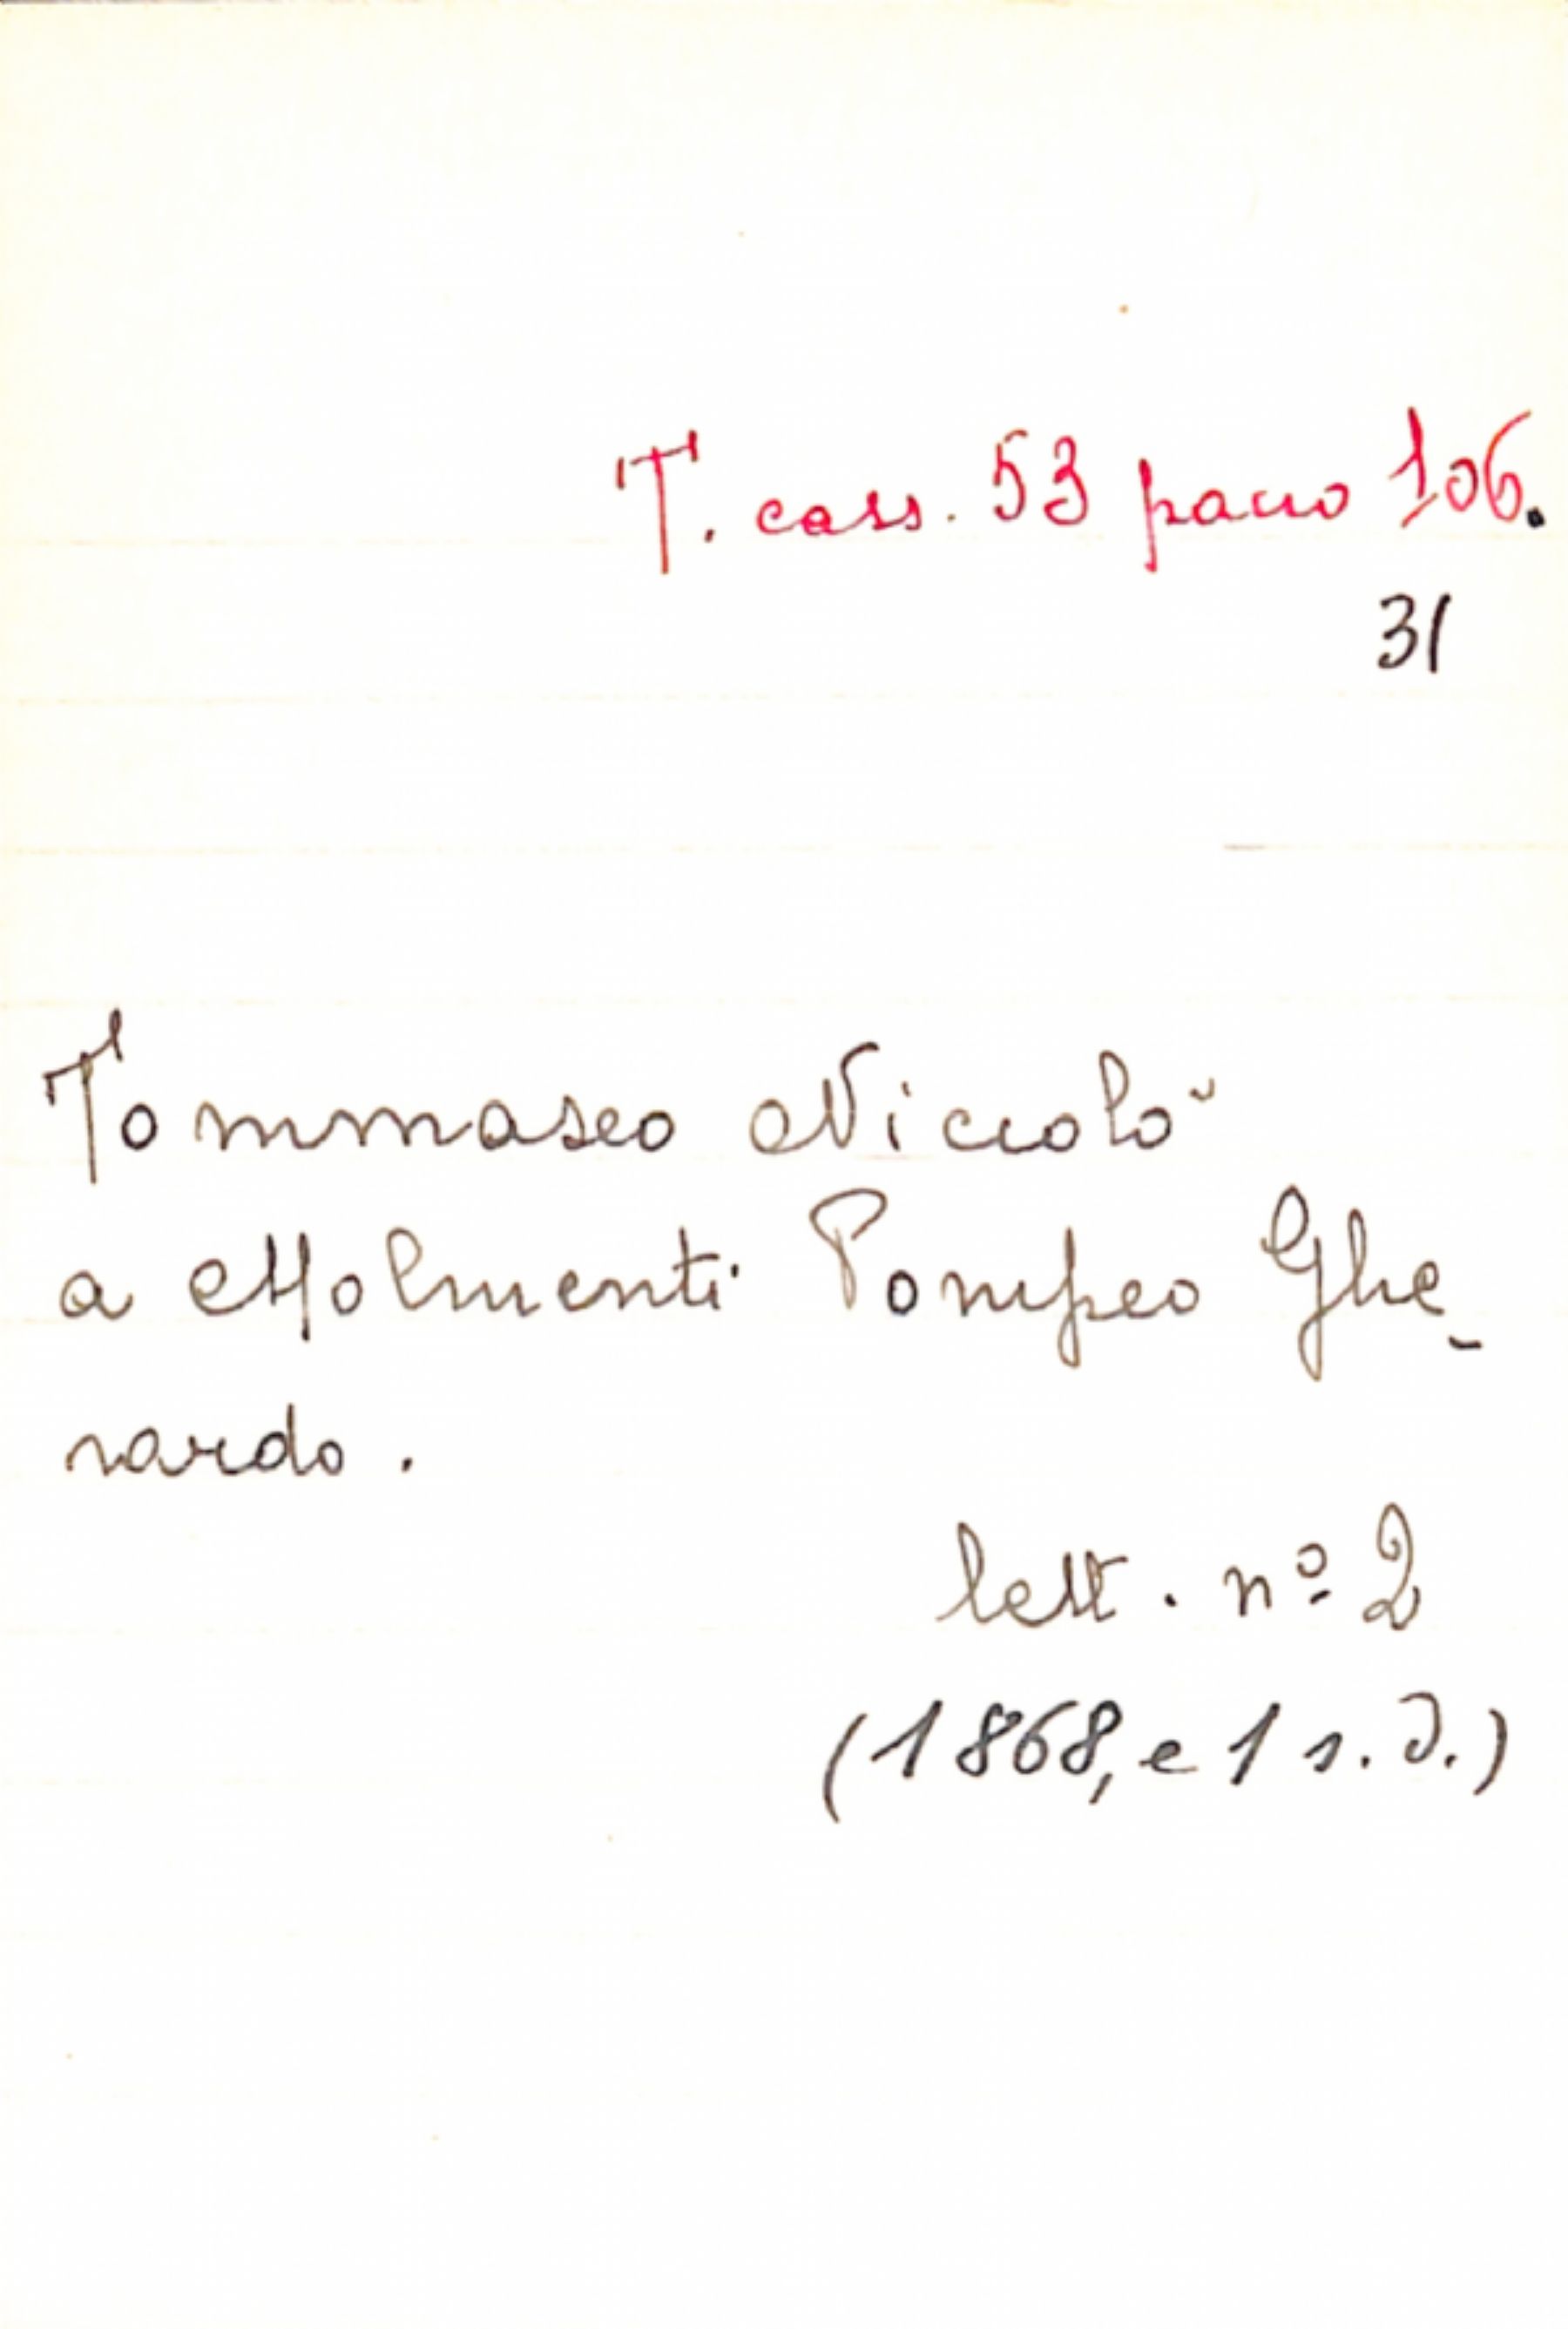 T. cass. 53 pacco 106.
31
Tommaseo Niccolò
a Molmenti Pompeo Ghe-
rardo.
lett. nº 2
(1868, e 1 s.d.)